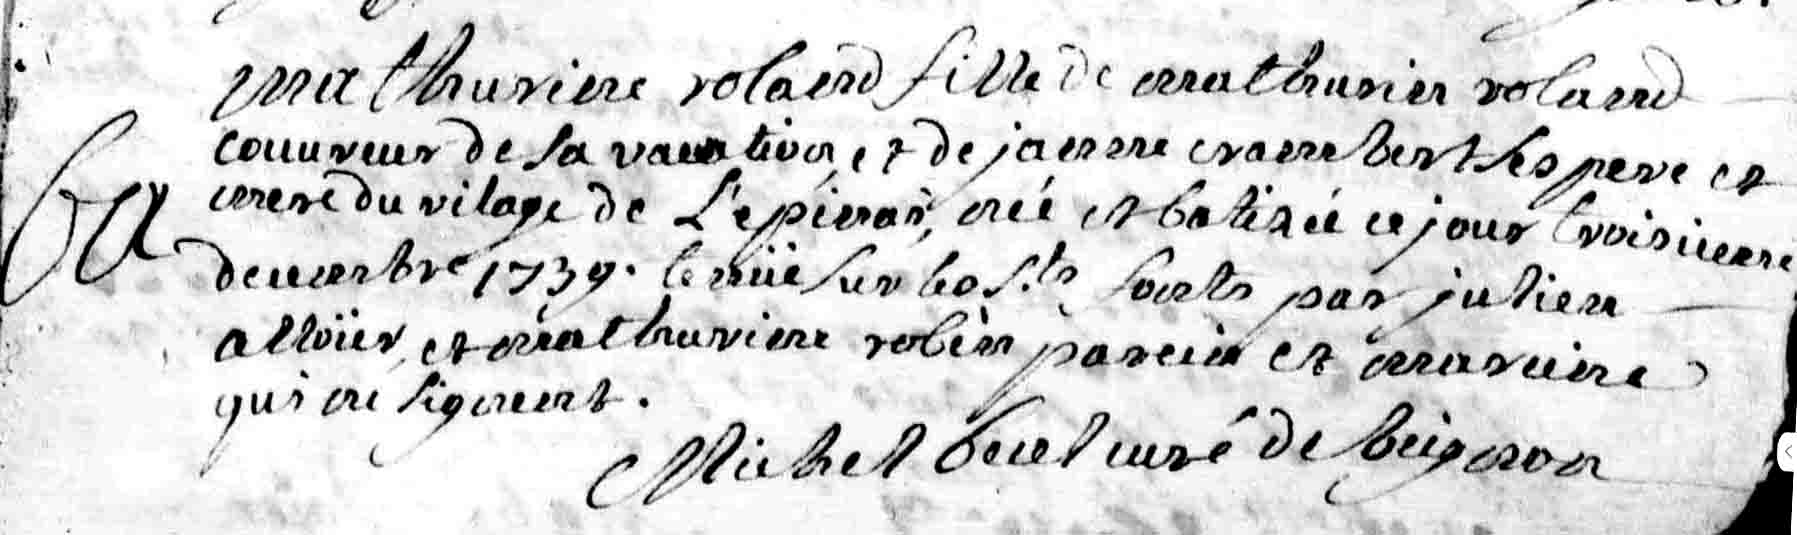 mathurine roland fille de mathurin roland
couureur de sa vacation, et de jaenne crambert ses pere et
mere du vilage de L'epinas, née et batizée ce jour troisieme
decembre 1739. tenüe sur les s.ts fonts par julien
alloüer, et mathurine robin parein et mareine
qui ne signent.
Ba
Michel curé de